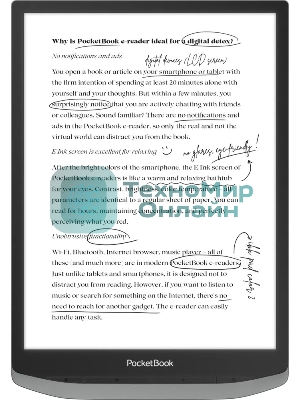 Why is PocketBook e-reader ideal for a digital detox?
No notifications and ads
digital devices (LCD screen)
You open a book or article on your smartphone or tablet with
the firm intention of spending at least 20 minutes alone with
yourself and your thoughts. But within a few minutes, you
surprisingly notice that you are actively chatting with friends
or colleagues. Sound familiar? There are no notifications and
ads in the PocketBook e-reader, so only the real and not the
virtual world can distract you from the book.
E Ink screen is excellent for relaxing :)
no glares, eye-friendly!
After the bright colors of the smartphone, the E Ink screen of
PocketBook e-readers is like a warm and relaxing bathtub
for your eyes. Contrast,
parameters are identical to a regular sheet of paper, you can
read for hours, maintaining concentration
perceiving what you read.
ТЕХНОМИР
ОНЛАЙН
Unobtrusive functionality
Wi-Fi, Bluetooth, Internet browser, music player – all of
these (and much more) are in modern PocketBook e-readers.
Just unlike tablets and smartphones, it is designed not to
distract you from reading. However, if you want to listen to
music or search for something on the Internet, there's no
need to reach for another gadget. The e-reader can easily
handle any task.
PocketBook